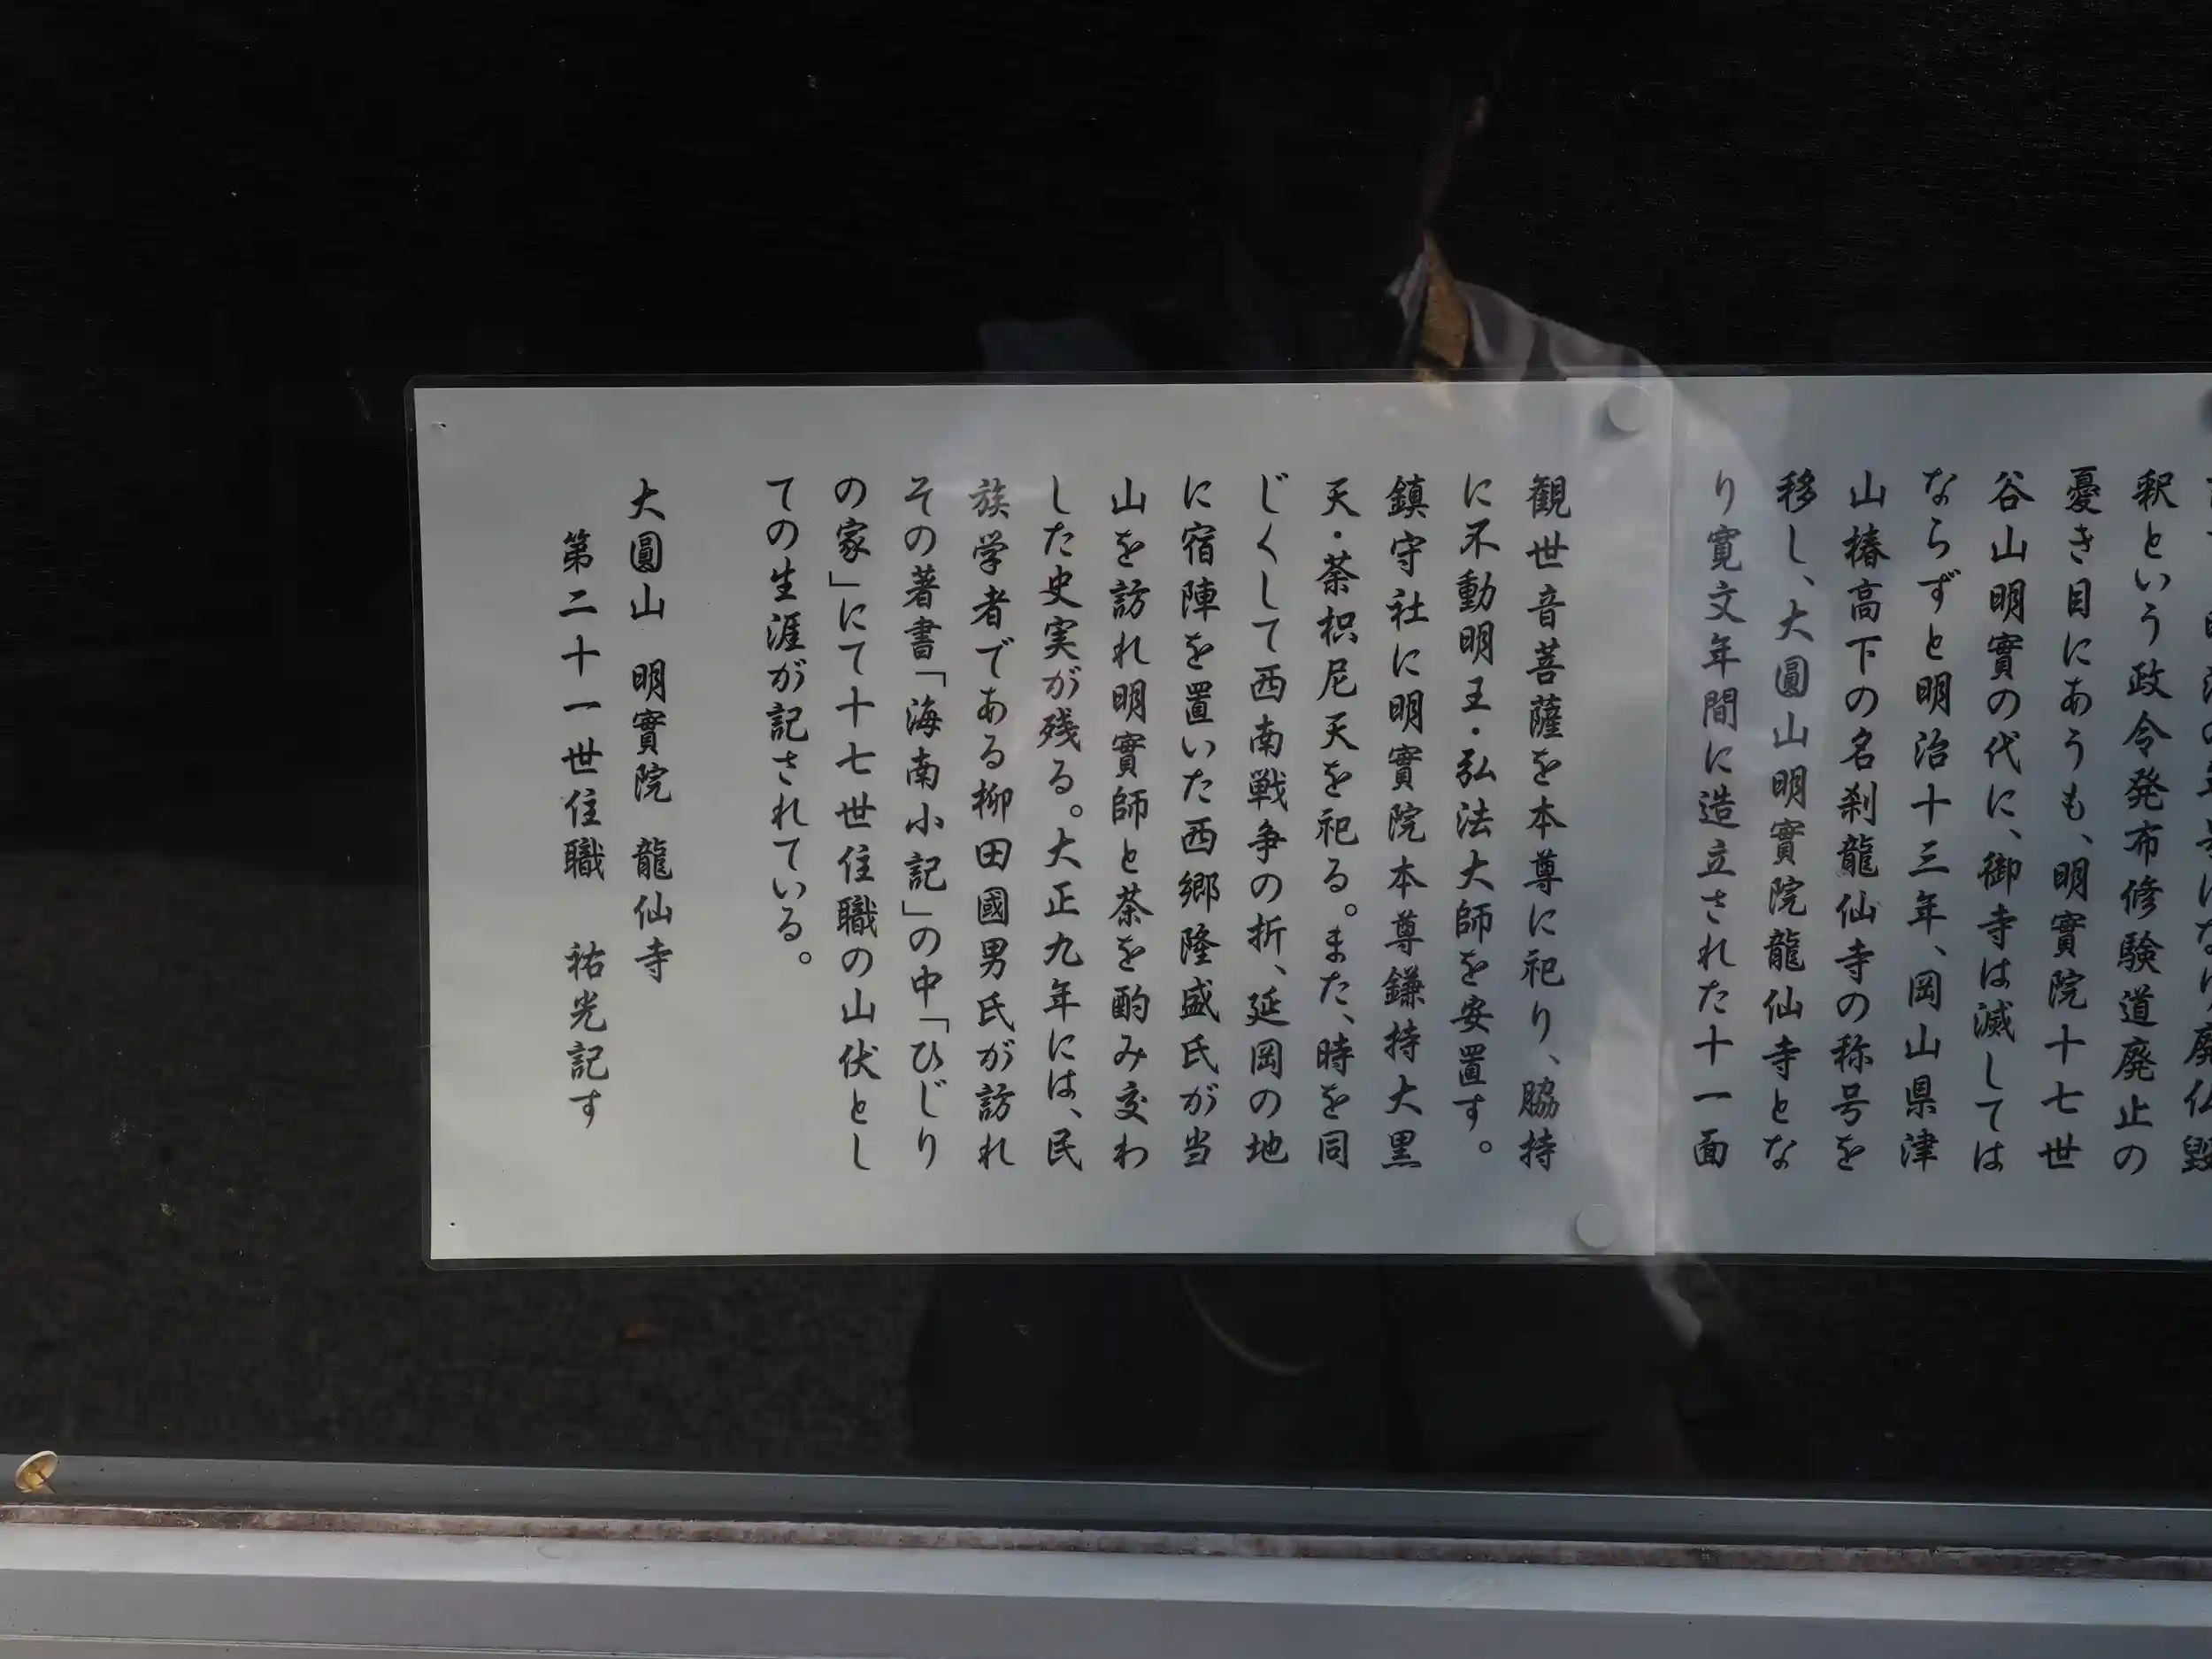 釈という政令発布修験道廃止の
憂き目にあうも、明實院十七世
谷山明實の代に、御寺は滅しては
ならずと明治十三年、岡山県津
山椿高下の名刹龍仙寺の称号を
移し、大圓山明實院龍仙寺とな
り寛文年間に造立された十一面
観世音菩薩を本尊に祀り、脇持
に不動明王・弘法大師を安置す。
鎮守社に明實院本尊鎌持大黒
天・荼枳尼天を祀る。また、時を同
じくして西南戦争の折、延岡の地
に宿陣を置いた西郷隆盛氏が当
山を訪れ明實師と茶を酌み交わ
した史実が残る。大正九年には、民
族学者である柳田國男氏が訪れ
その著書「海南小記」の中「ひじり
の家」にて十七世住職の山伏とし
ての生涯が記されている。
大圓山 明實院 龍仙寺
第二十一世住職 祐光記す